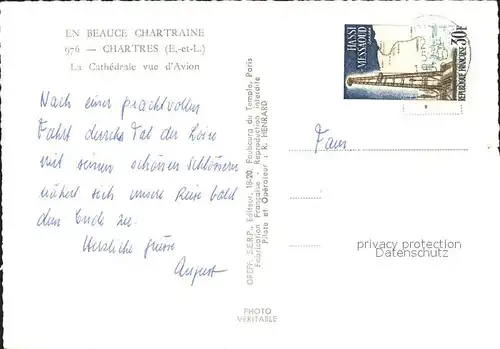 EN BEAUCE CHARTRAINE
976 — CHARTRES (E.-et-L.)
La Cathédrale vue d'Avion
Nach einer prachtvollen
Fahrt durchs Tal der Loire
mit seinen schönen Schlössern
nähert sich unsere Reise bald
dem Ende zu.
Herzliche Grüsse
August
GREFF, S.E.R.P., Editeur, 18-20, Faubourg du Temple, Paris
Fabrication Française - Reproduction interdite
Pilote et Opérateur : R. HENRARD
PHOTO
VÉRITABLE
HASSI
MESSAOUD
SAHARA
30F
REPUBLIQUE FRANÇAISE
Fam
privacy protection
Datenschutz